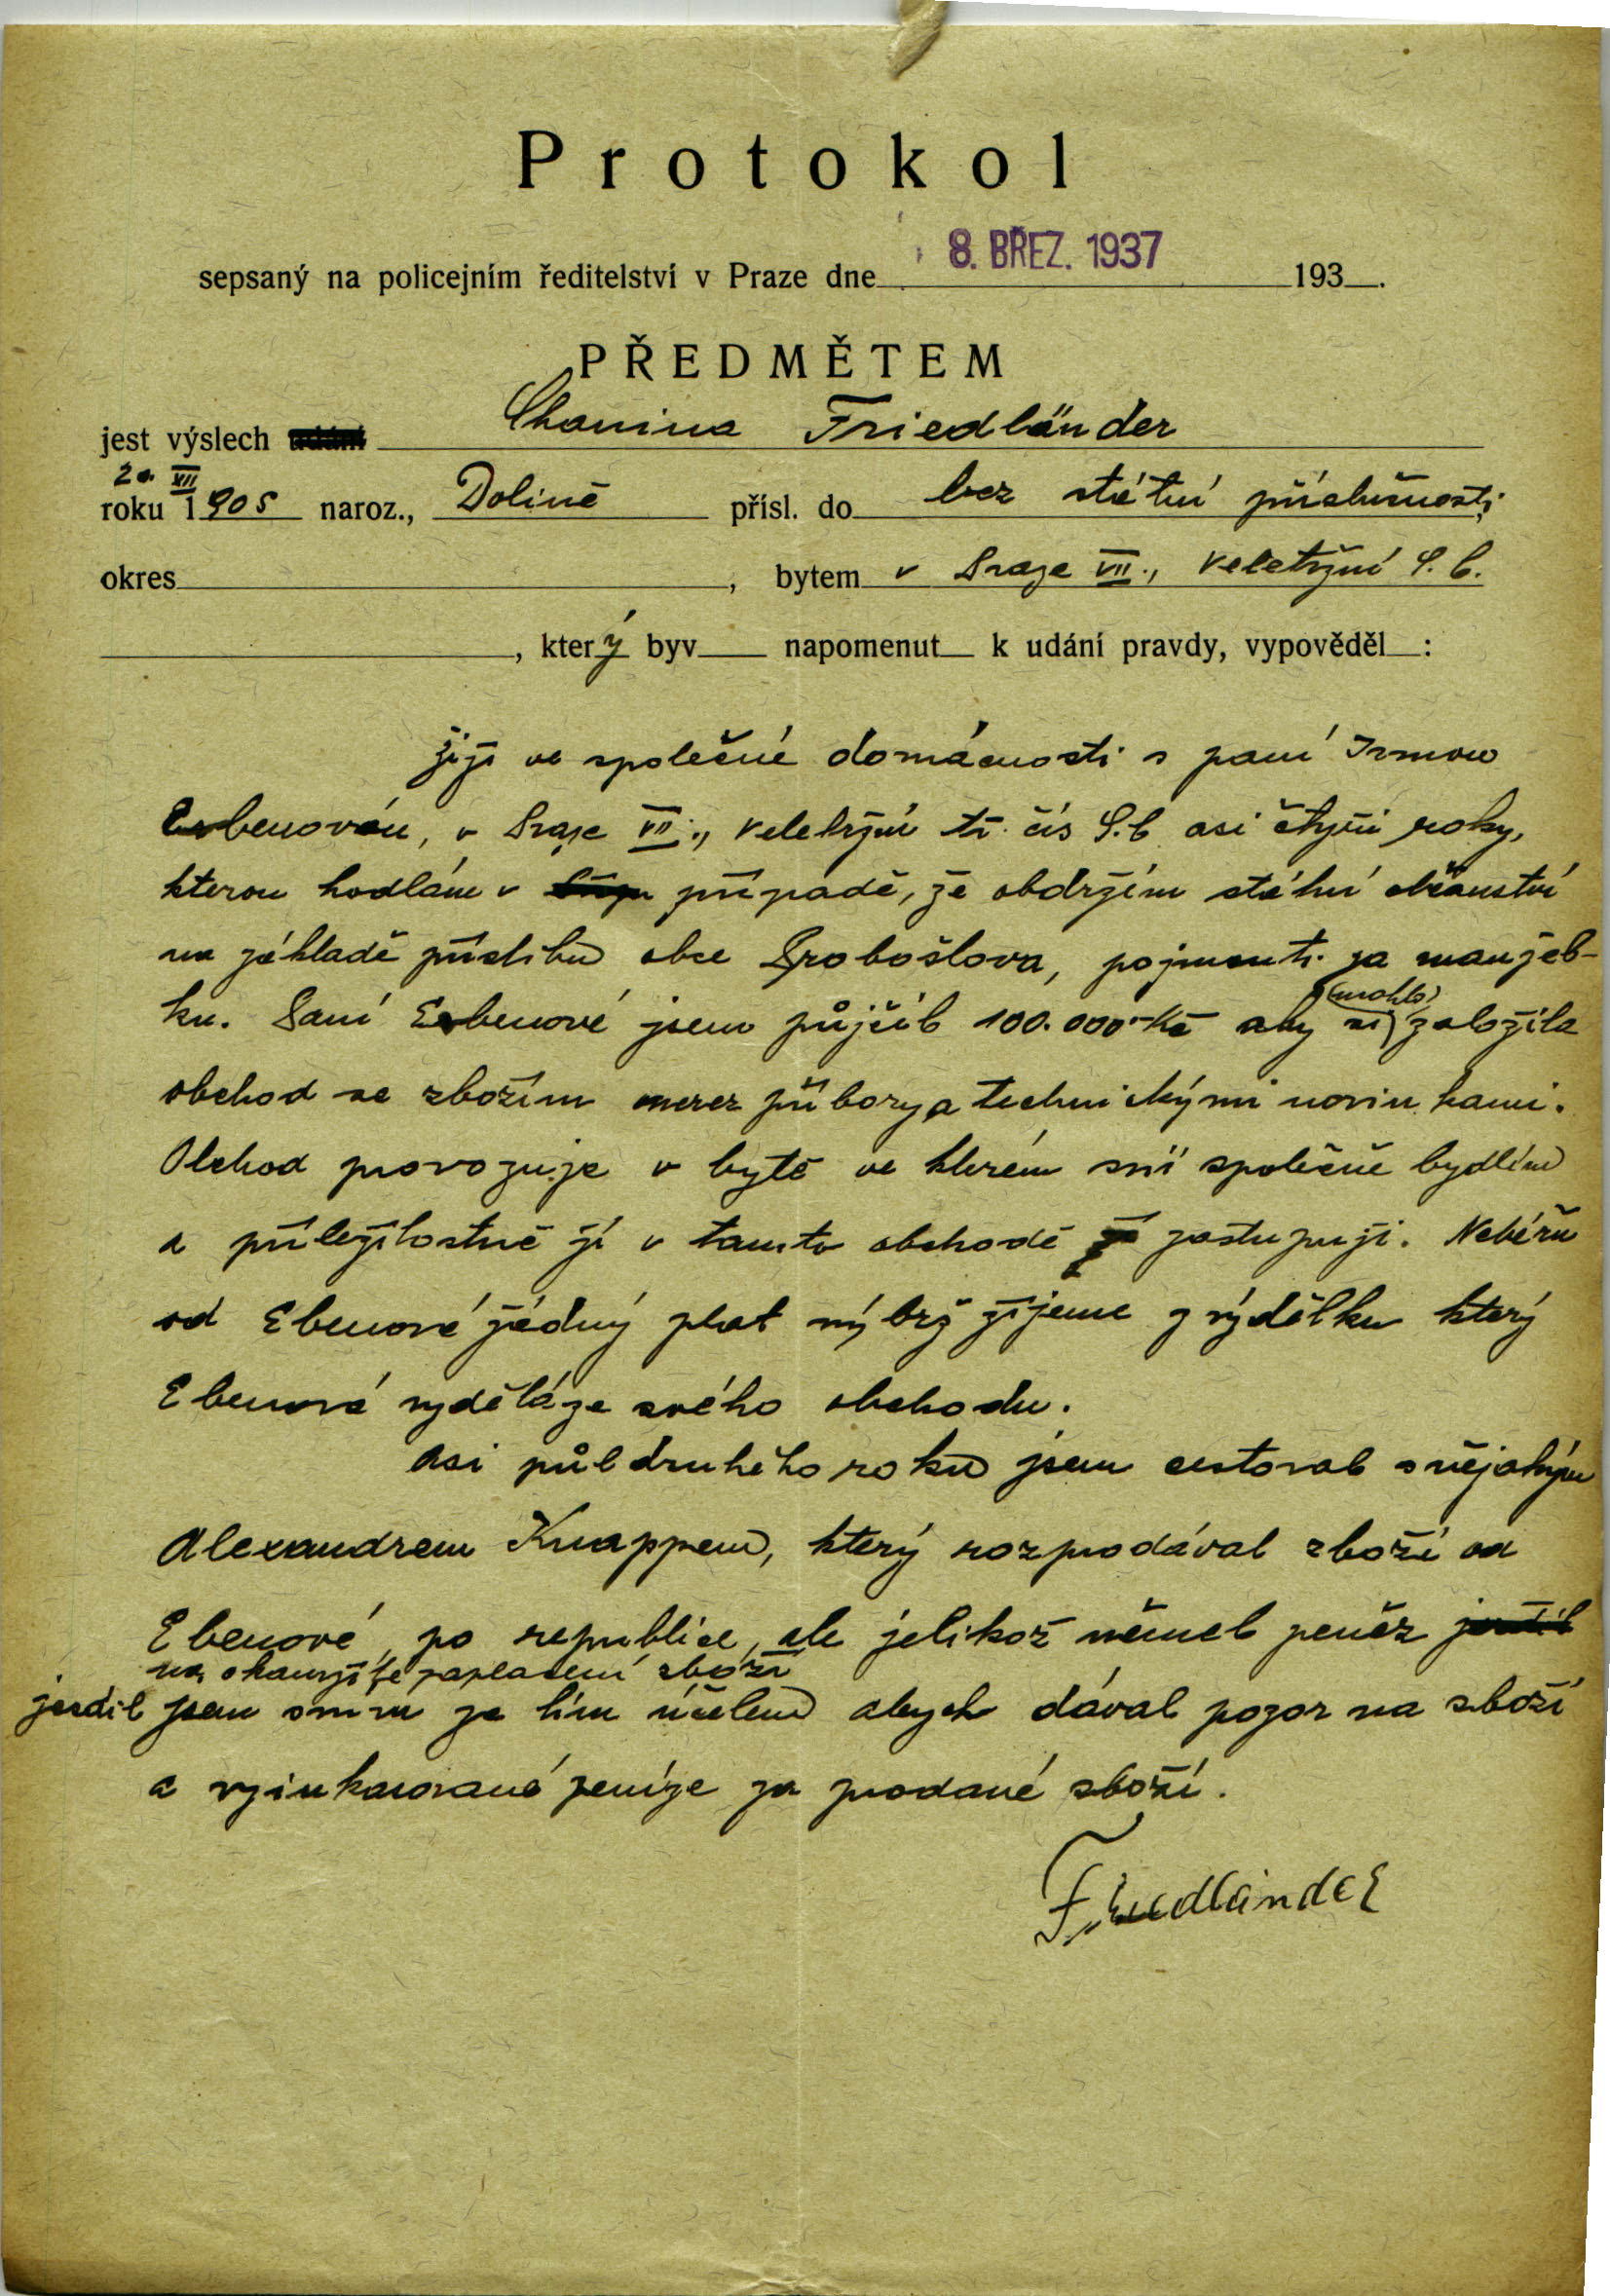 Protokol
8. BŘEZ. 1937
sepsaný na policejním ředitelství v Praze dne 193 .
PŘEDMĚTEM
jest výslech udání Chanina Friedländer
20. VII
roku 1905 naroz., Dolině přísl. do bez státní příslušnosti
okres , bytem v Praze VII., Veletržní
, který byv napomenut k udání pravdy, vypověděl :
žiji ve společné domácnosti s paní Irmou
Ebenovou, v Praze VII., Veletržní tř. čís asi čtyři roky,
kterou hodlám v případě, že obdržím státní občanství
na základě příslibu obce Proboštova, pojmouti za manžel-
ku. Paní Ebenové jsem půjčil 100.000 Kč aby si (mohla) založila
obchod se zbožím příbory a technickými novinkami.
Obchod provozuje v bytě ve kterém s ní společně bydlím
a příležitostně ji v tomto obchodě zastupuji. Neběřu
od Ebenové žádný plat nýbrž žijeme z výdělku který
Ebenová vydělá ze svého obchodu.
Asi půl druhého roku jsem cestoval s nějakým
Alexandrem Knappem, který rozprodával zboží od
Ebenové, po republice, ale jelikož neměl peněz jezdil
na okamžité zaplacení zboží
jezdil jsem s ním za tím účelem abych dával pozor na zboží
a vyinkasované peníze za prodané zboží.
Friedländer